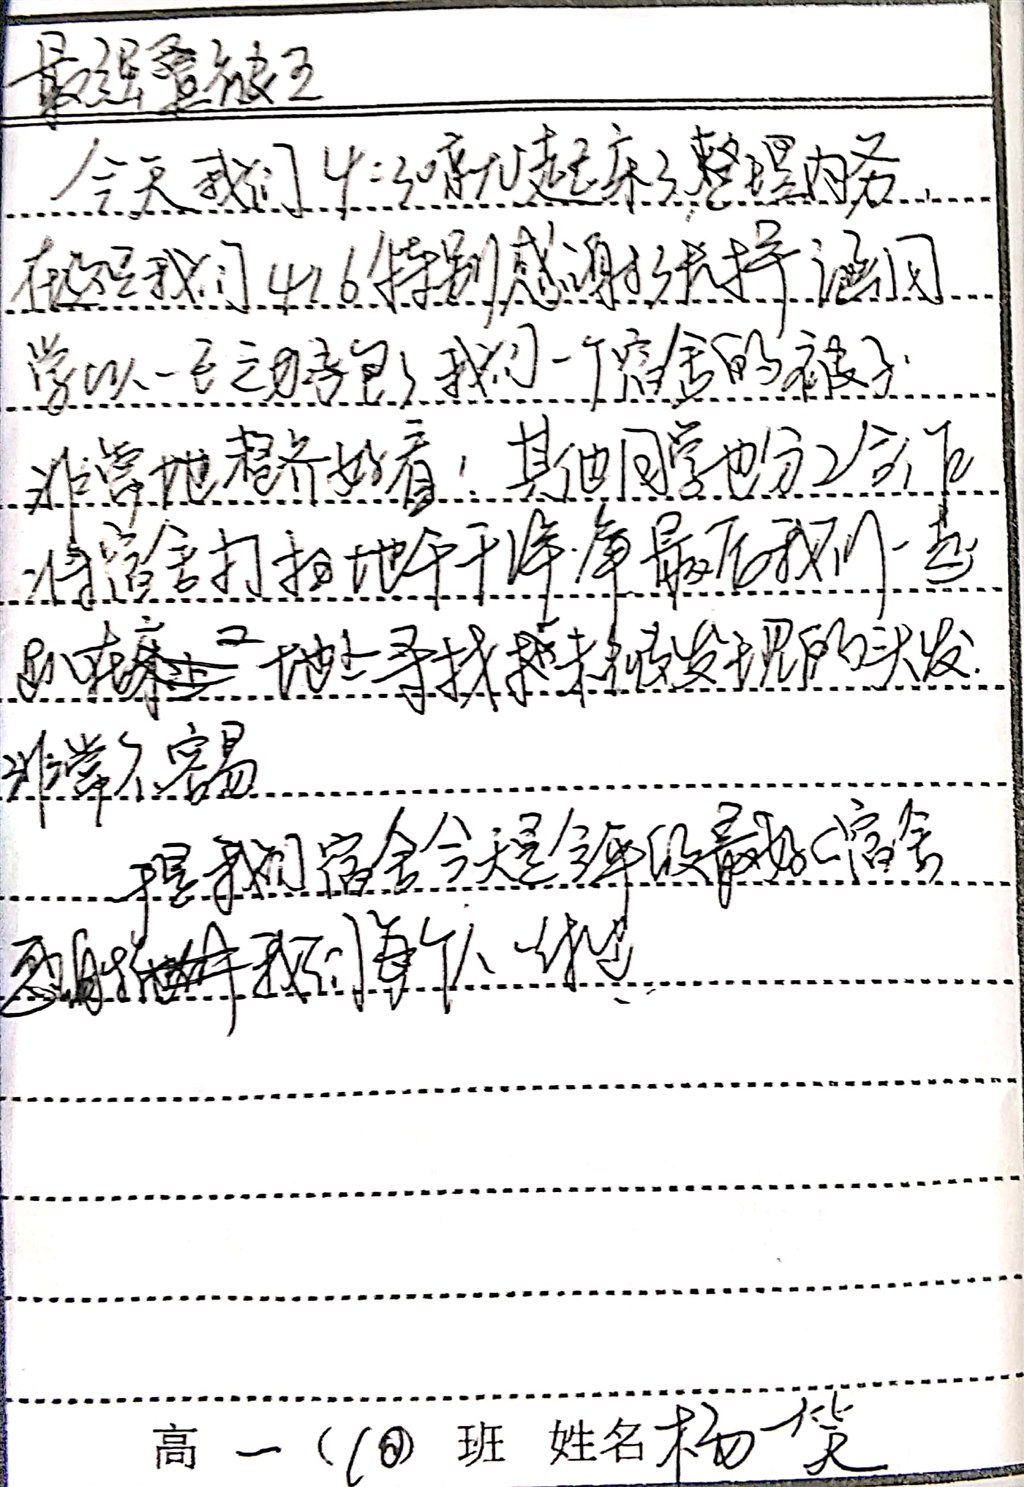 最强叠被王
今天我们4:30就起床了整理内务,
在这里我们416特别感谢张梓涵同
学以一己之力承包了我们一个宿舍的被子.
非常地整齐好看!其他同学也分工合作
将宿舍打扫地干干净净最后我们一起
趴在地上寻找未被发现的头发.
非常不容易
我们宿舍今天是全年级最好的宿舍
我们每个人
高一(10)班 姓名杨一笑